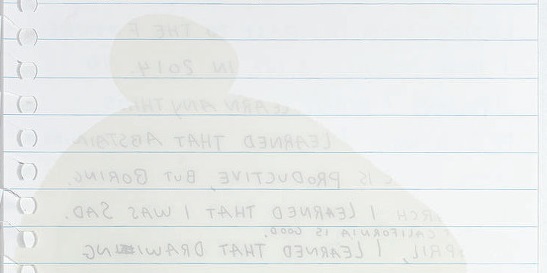 IN THE F
IN 2014.
LEARN ANYTHI
LEARNED THAT ABSTAIN
IS PRODUCTIVE, BUT BORING.
RCH I LEARNED THAT I WAS SAD.
CALIFORNIA IS GOOD.
APRIL, I LEARNED THAT DRAWING